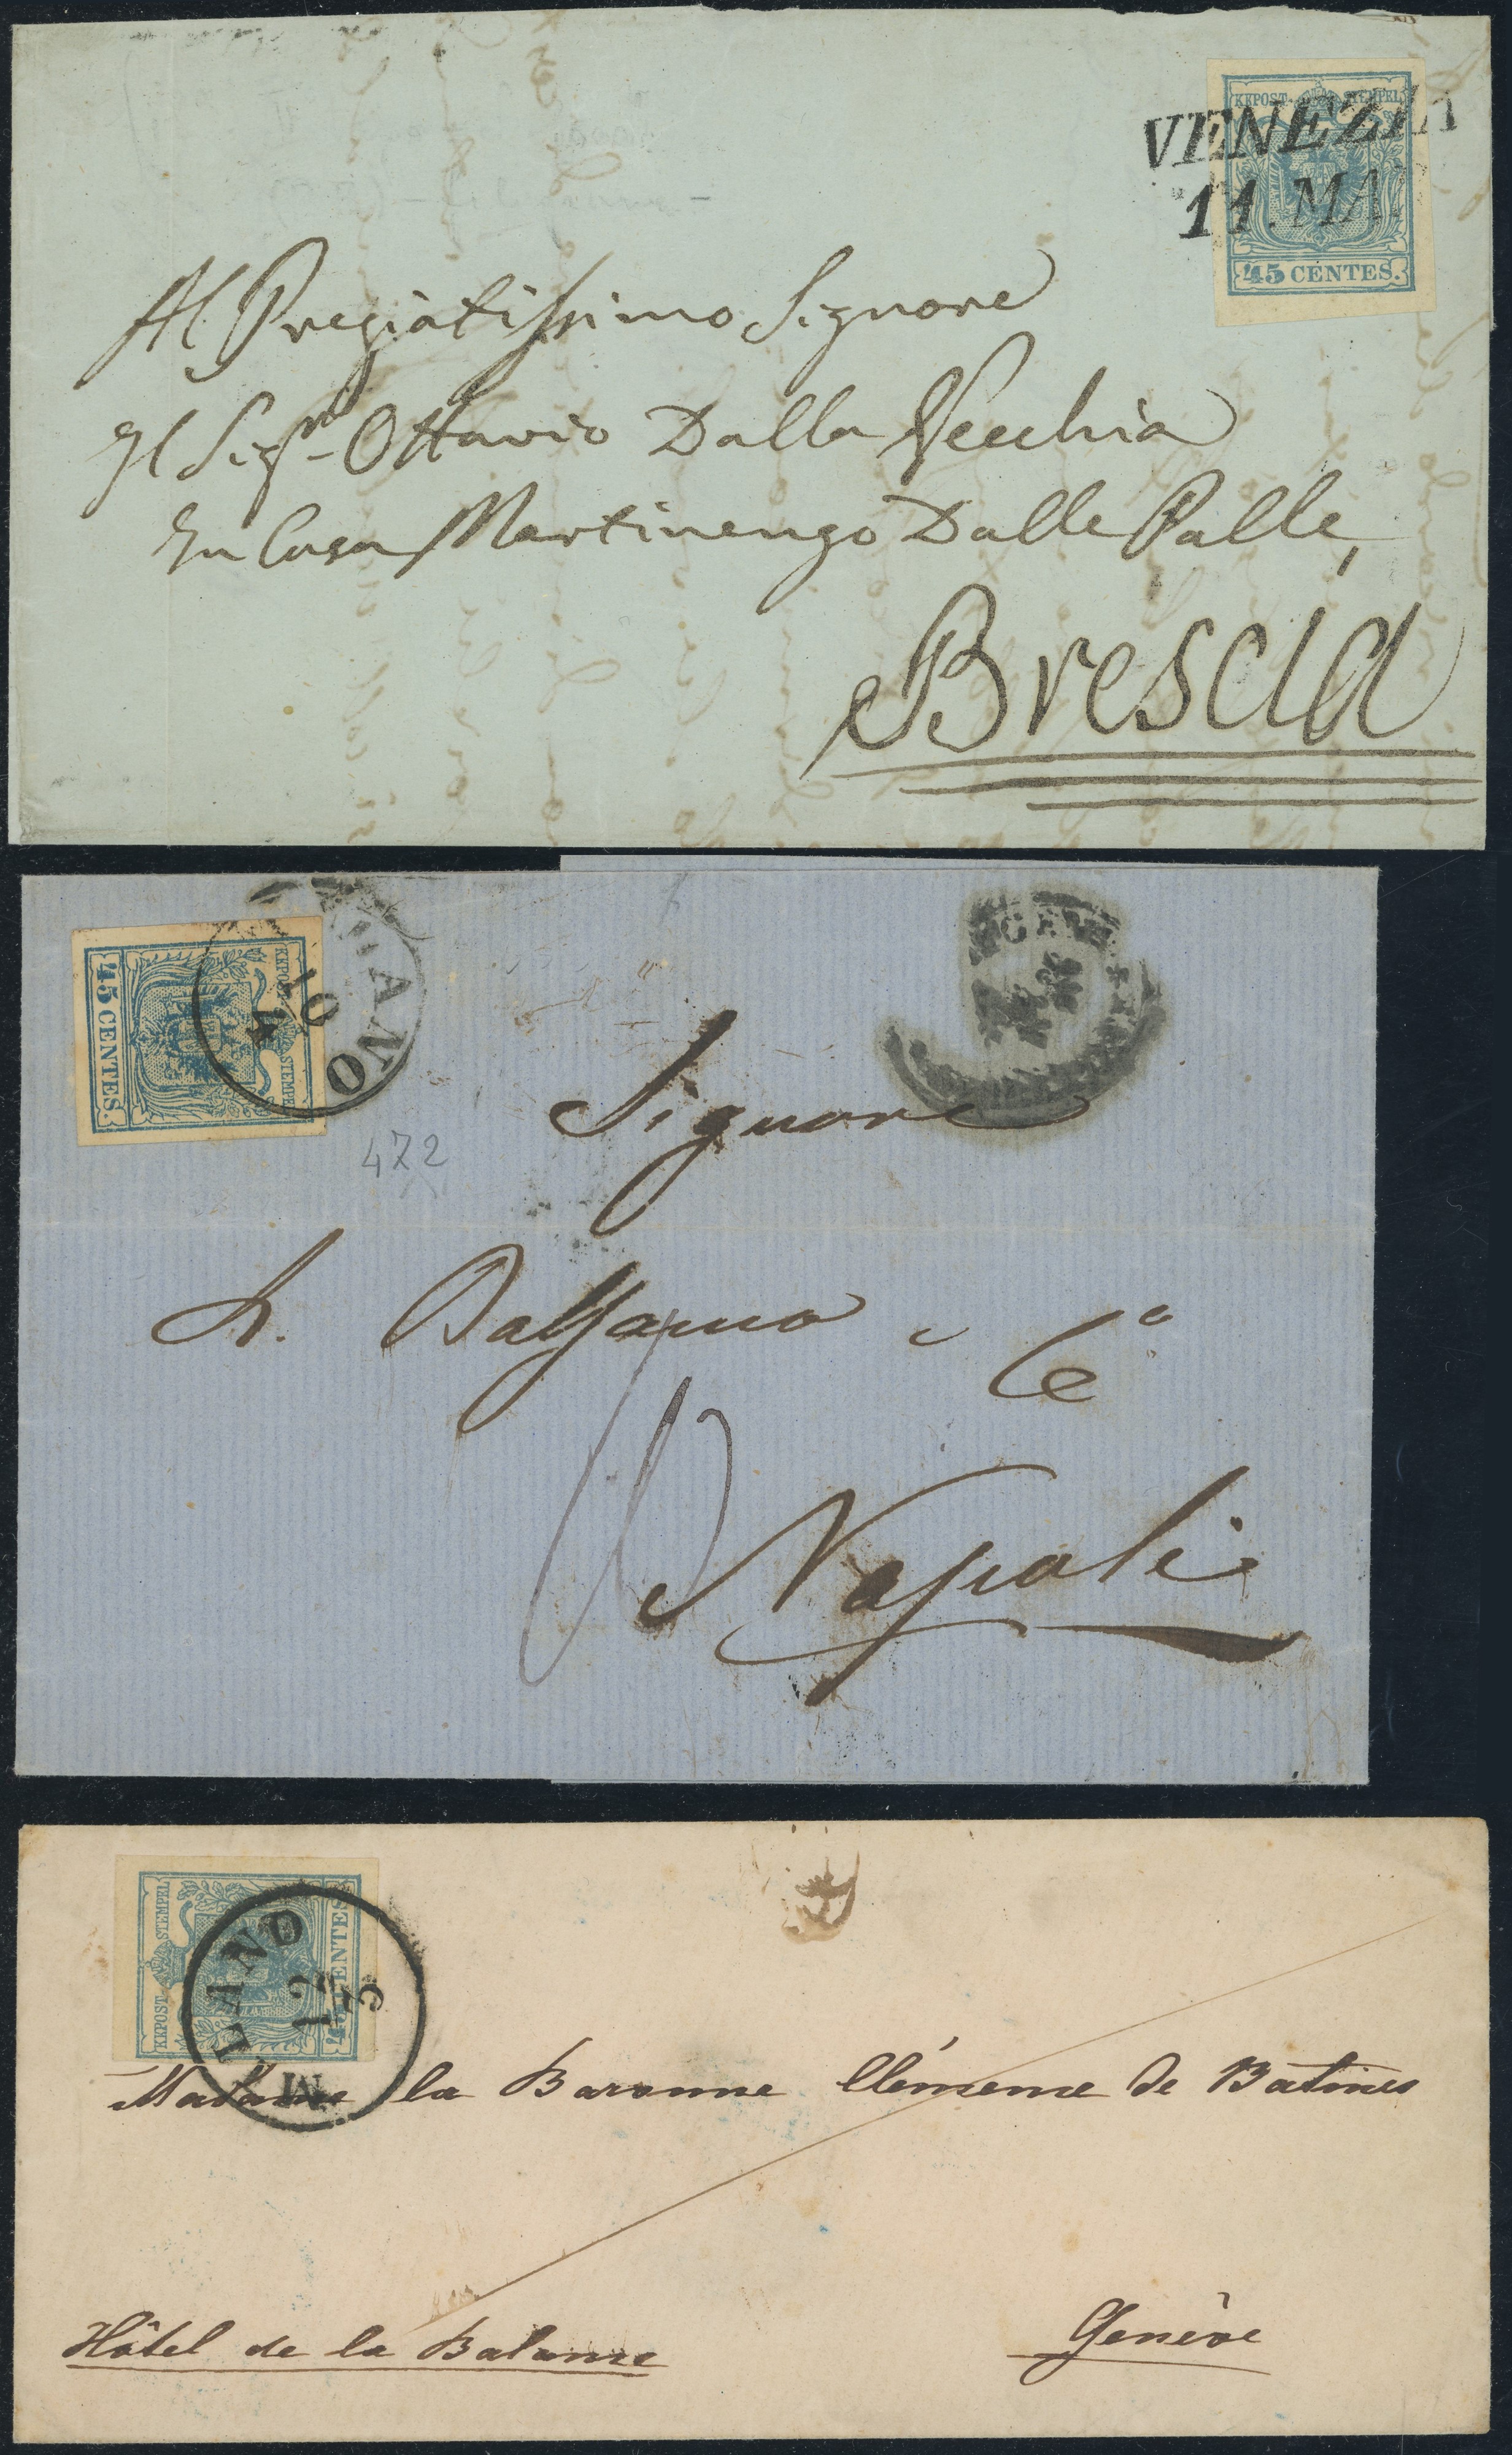 KKPOST-STEMPEL
VENEZIA
11.MA
45 CENTES.
Al Pregiatissimo Signore
Il Sigr Ottavio Dalla Vecchia
In Casa Martinengo Dalle Palle,
Brescia
KKPOST-STEMPEL
45 CENTES.
MILANO
10
4
472
Signore
Balsamo e Co
Napoli
KKPOST-STEMPEL
45 CENTES.
MILANO
12
3
Madame la Baronne Clémence de Batines
Hôtel de la Balance
Genève